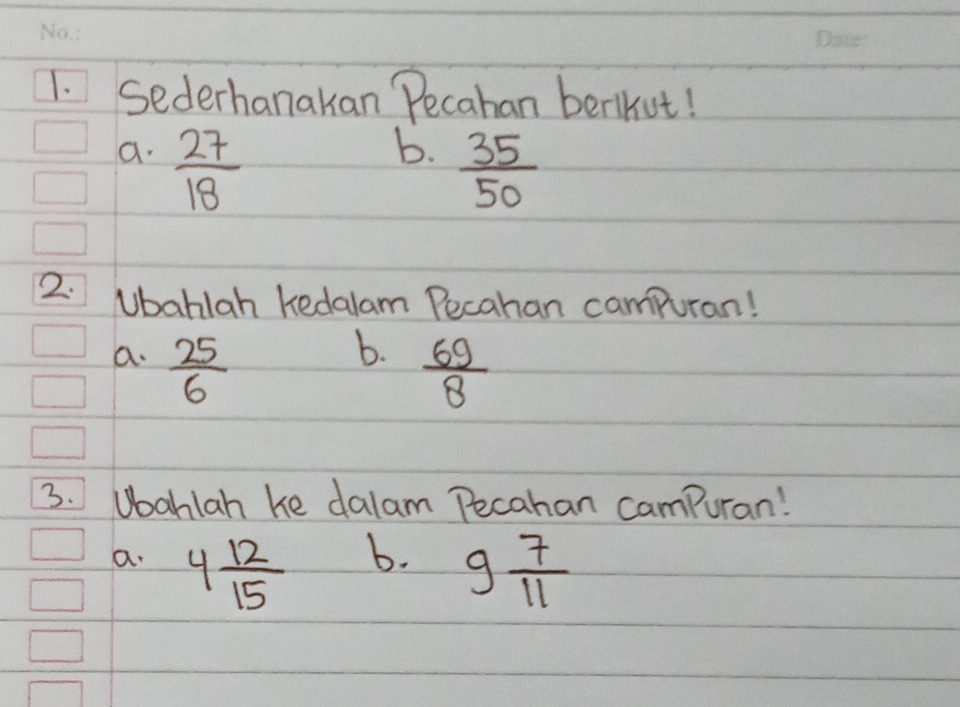 No.: Date
1. Sederhanakan Pecahan berikut!
a. 27/18 b. 35/50
2. Ubahlah kedalam Pecahan camPuran!
a. 25/6 b. 69/8
3. Ubahlah ke dalam Pecahan camPuran!
a. 4 12/15 b. 9 7/11